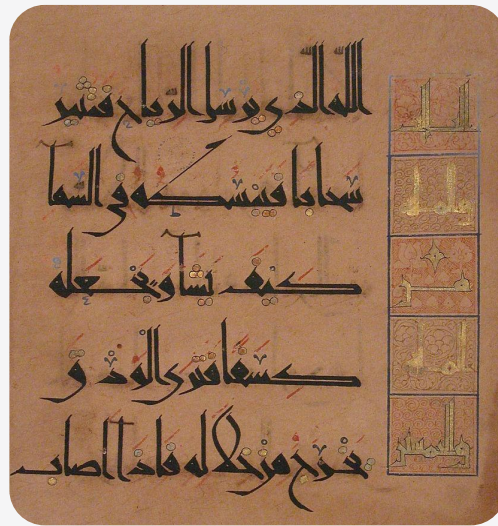 الله الذي يرسل الرياح فتثير
سحابا فيبسطه في السماء
كيف يشاء ويجعله
كسفا فترى الودق
يخرج من خلاله فاذا اصاب